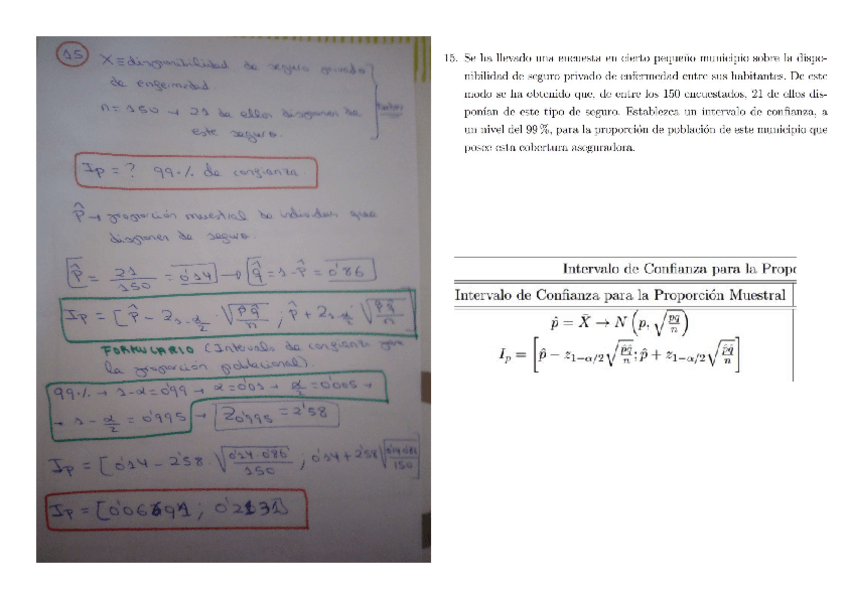 15
X ≡ disponibilidad de seguro privado
de enfermedad.
n = 150 → 21 de ellos disponen de
este seguro.
Ip = ? 99% de confianza.
p̂ → proporción muestral de individuos que
disponen de seguro.
p̂ = 21/150 = 0'14 → q̂ = 1 - p̂ = 0'86
Ip = [p̂ - z1-α/2 · √(p̂q̂/n) ; p̂ + z1-α/2 √(p̂q̂/n)]
FORMULARIO (Intervalo de confianza para
la proporción poblacional).
99% → 1-α = 0'99 → α = 0'01 → α/2 = 0'005 →
→ 1 - α/2 = 0'995 → Z0'995 = 2'58
Ip = [0'14 - 2'58 · √(0'14·0'86/150) ; 0'14 + 2'58 √(0'14·0'86/150)]
Ip = [ ; 0'2131]
15. Se ha llevado una encuesta en cierto pequeño municipio sobre la dispo-
nibilidad de seguro privado de enfermedad entre sus habitantes. De este
modo se ha obtenido que, de entre los 150 encuestados, 21 de ellos dis-
ponían de este tipo de seguro. Establezca un intervalo de confianza, a
un nivel del 99 %, para la proporción de población de este municipio que
posee esta cobertura aseguradora.
Intervalo de Confianza para la Propo
Intervalo de Confianza para la Proporción Muestral
p̂ = X̄ → N(p, √(pq/n))
Ip = [p̂ - z1-α/2 √(p̂q̂/n); p̂ + z1-α/2 √(p̂q̂/n)]